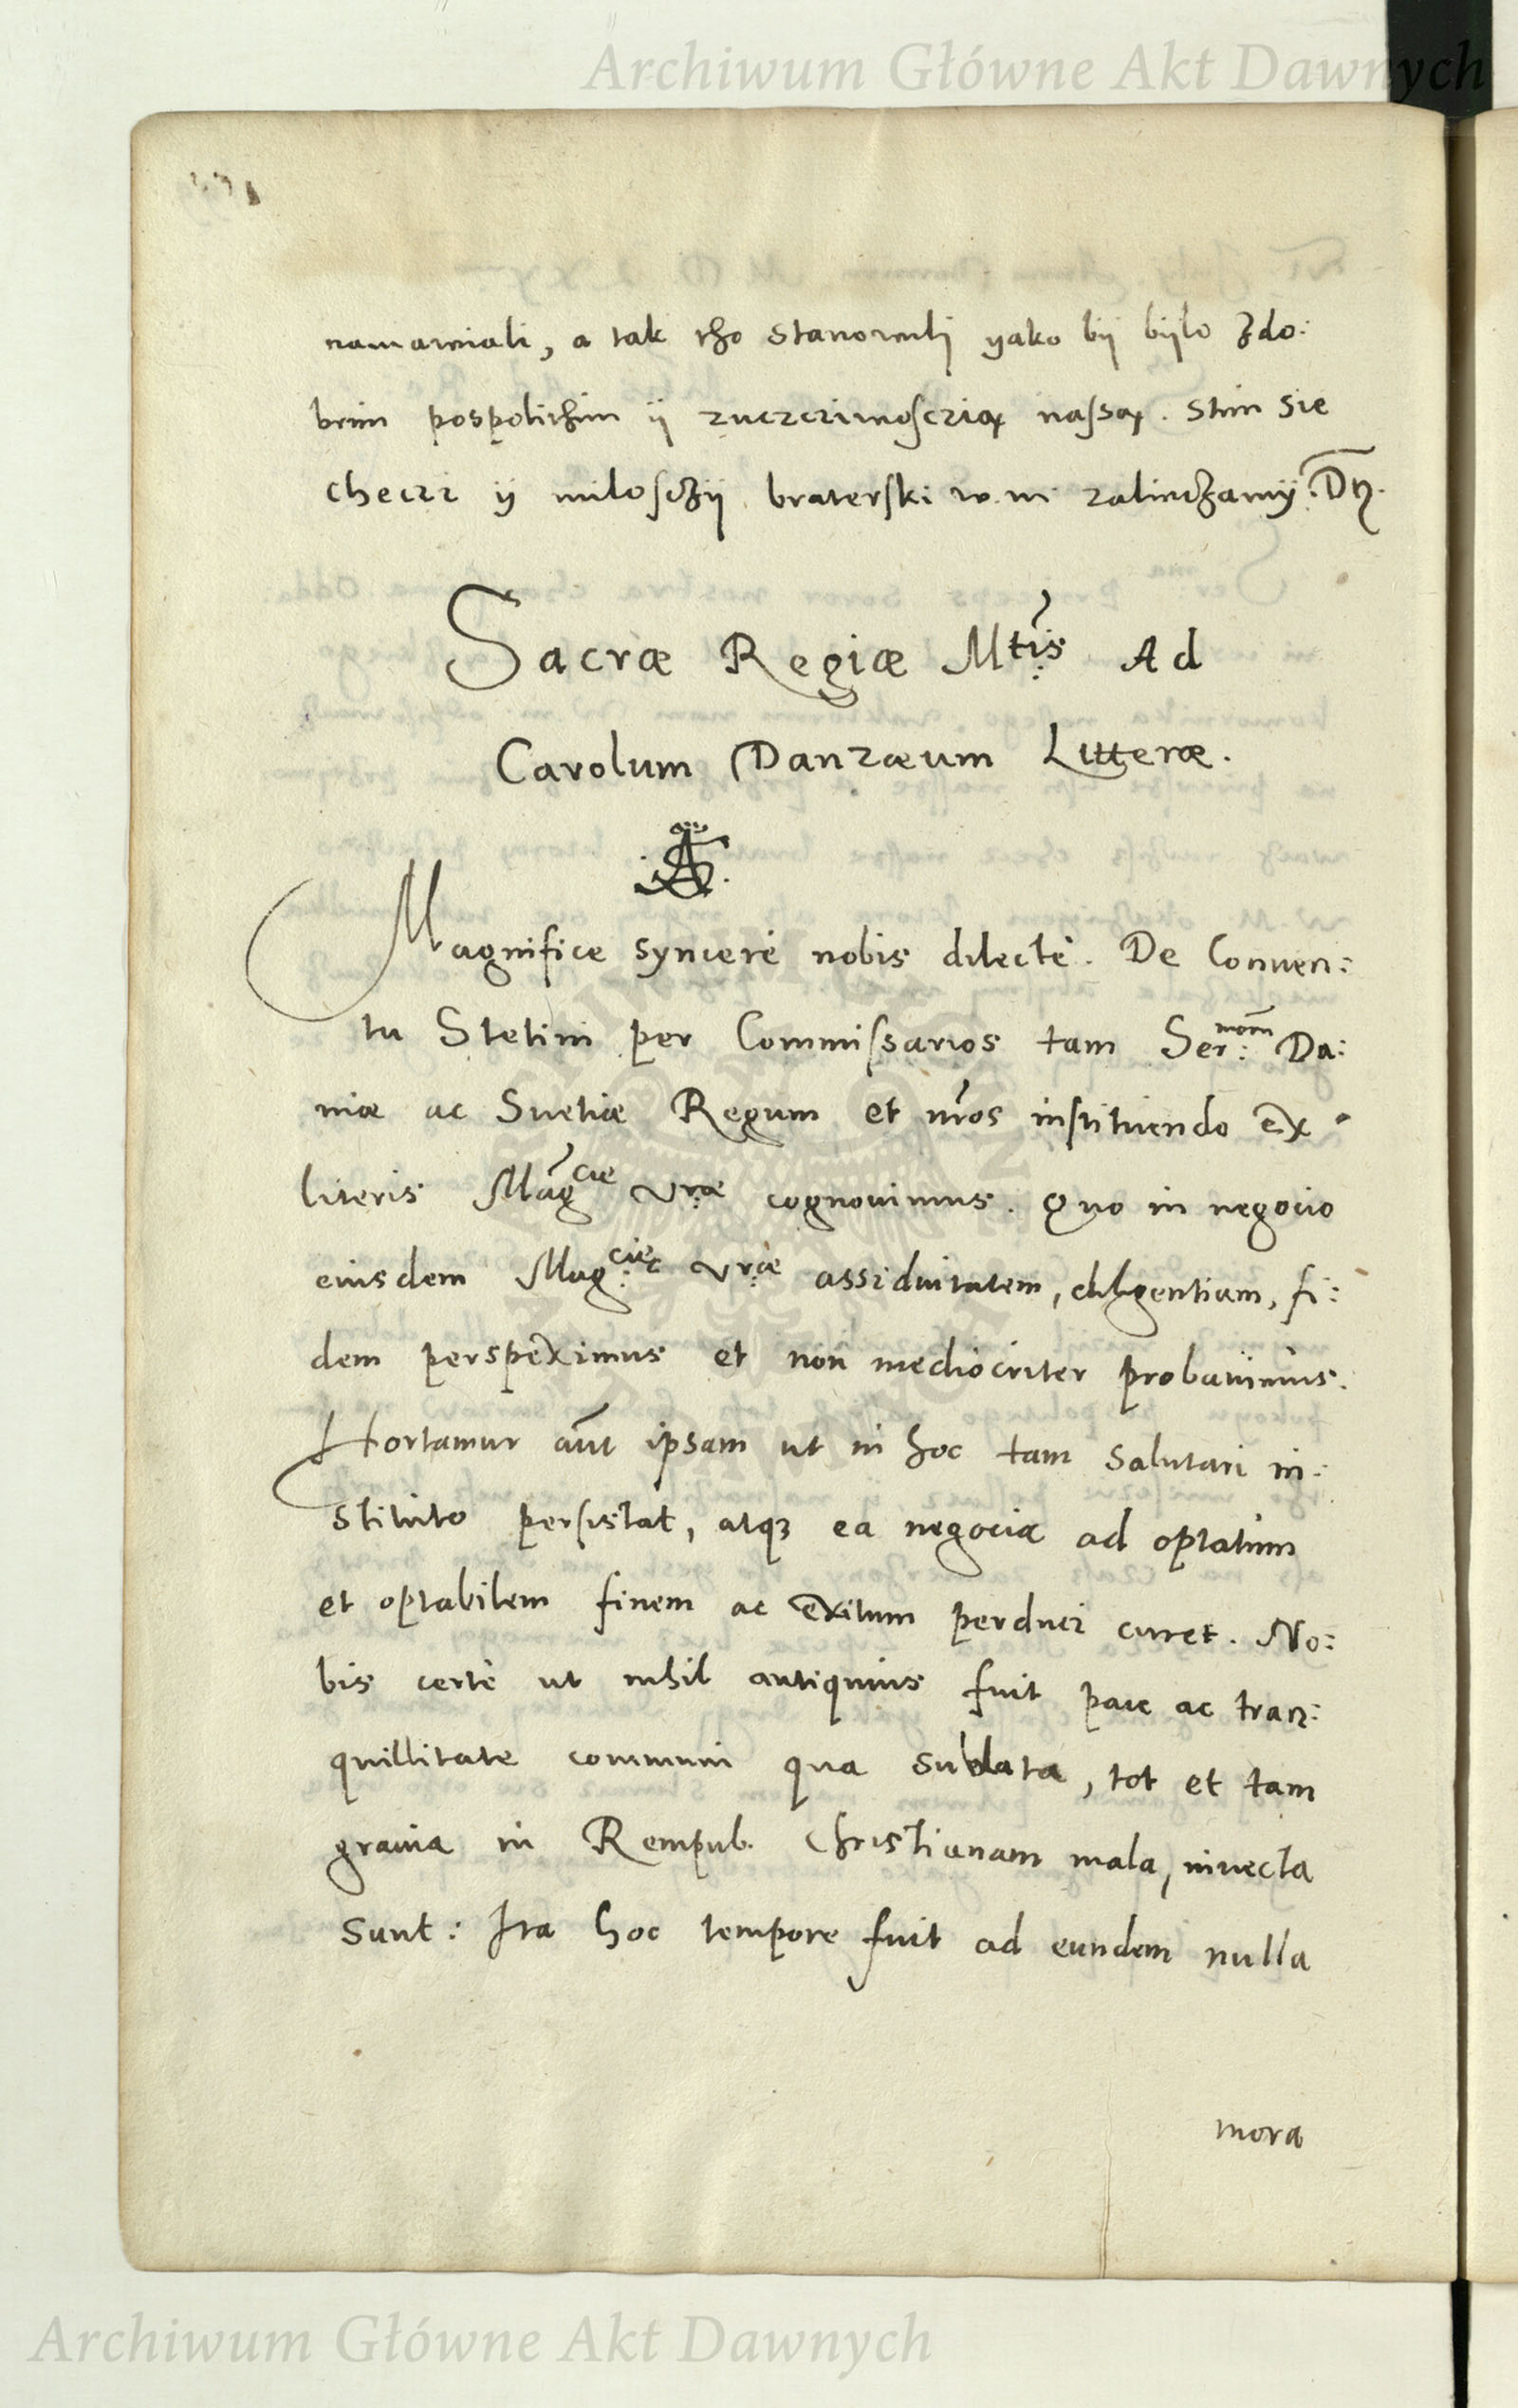 Archiwum Główne Akt Dawnych
namawiali, a tak tho stanowili yako bÿ bÿlo Zdo:
brim pospolithim ÿ zuczciwosczią nassą. Stim sie
checzi ÿ milosczÿ braterski w. m zaliczamÿ. Dn.
Sacræ Regiæ Mtis Ad
Carolum Danzæum Litteræ.
Magnifice syncerè nobis dilectè. De Conuen:
tu Stetini per Commissarios tam Ser:mom Da:
niæ ac Suetiæ Regum et nros instituendo ex
literis Magcie vræ cognouimus. Quo in negocio
eiusdem Mag:cie vræ assiduitatem, diligentiam, fi:
dem perspeximus et non mediocriter probauimus.
Hortamur aut ipsam ut in hoc tam salutari in:
stituto persistat, atq3 ea negocia ad optatum
et optabilem finem ac exitum perduci curet. No:
bis certè ut nihil antiquius fuit pace ac tran:
quillitate communi qua sublata, tot et tam
grauia in Rempub. Christianam mala, inuecta
sunt: Ita hoc tempore fuit ad eundem nulla
mora
Archiwum Główne Akt Dawnych